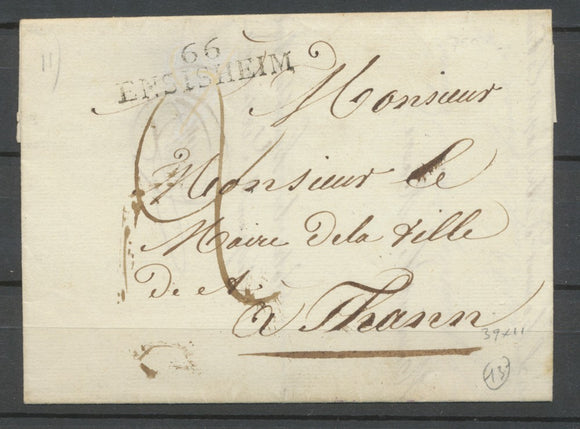 11)
66
ENSISHEIM
Monsieur
Monsieur le
Maire dela Ville
De
à Thann
39x11
13